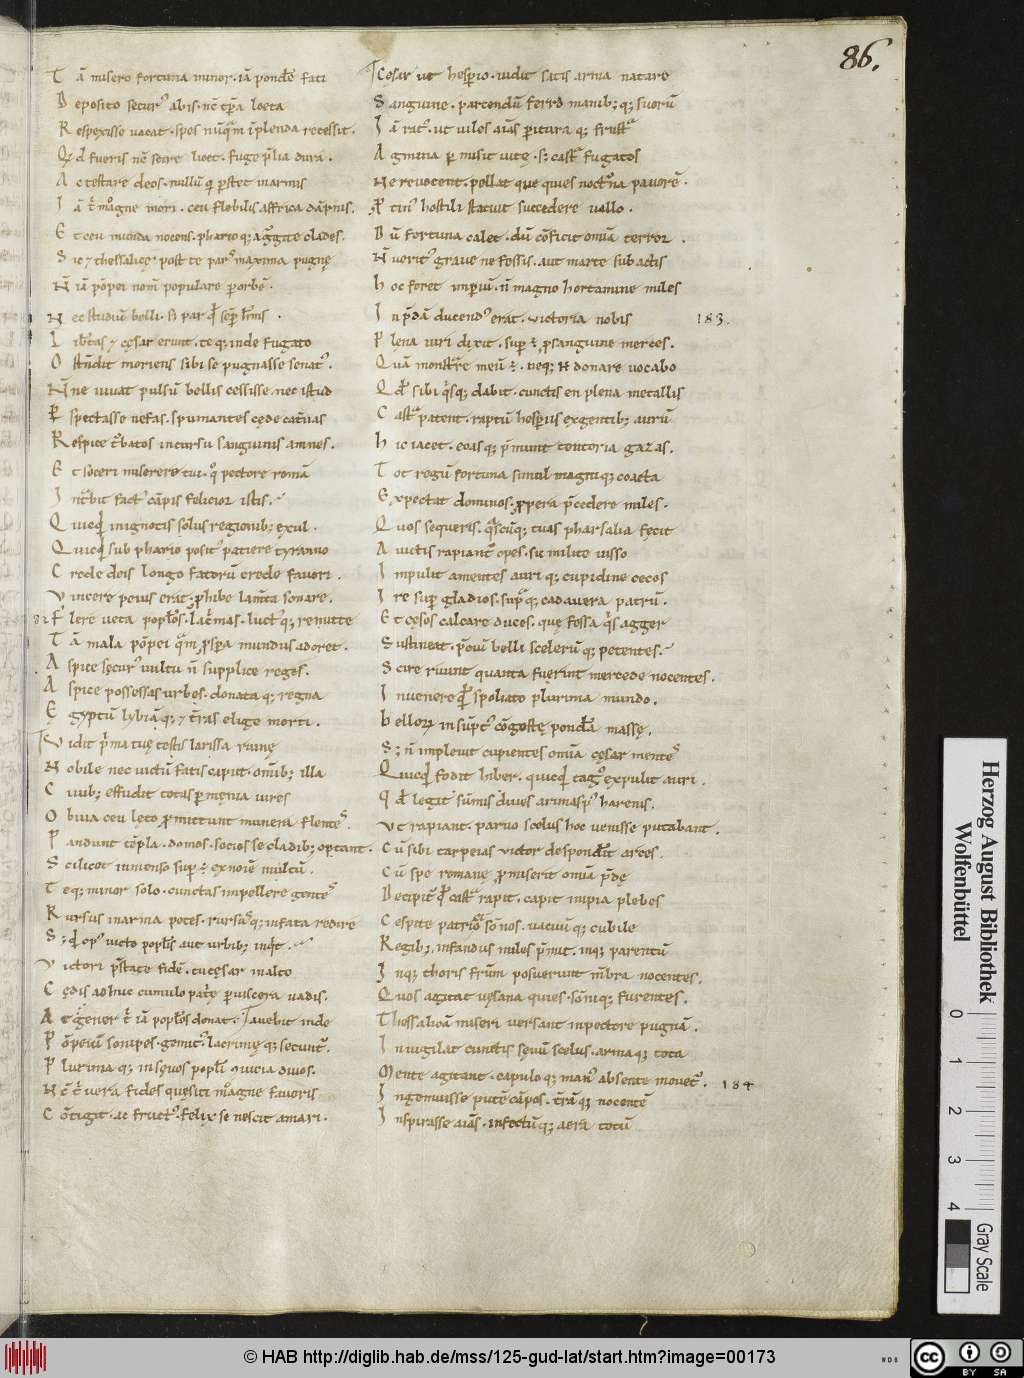 86.
T ā misero fortuna minor. iā pond̄e fati
D eposito securꝰ abis. nc̄ tp̄ra lȩta
R espexisse vacat. spes nūq̄m īplenda recessit.
Q d̄ fueris nc̄ scire licet. fuge p̄lia dira.
A c testare deos. nullū q̇ p̄stet in armis
I ā t̄ magne mori. ceu flebilis affrica dāpnis.
E t ceu munda nocens. pharioq; a gurgite clades.
S ic ⁊ thessalicȩ post te parˢ maxima pugnȩ
N iā pōpei nom̄ populare p̄ orbē.
N ec studiū belli. s; par qd̄ sēp̄ hēmꝰ.
L ib̄tas ⁊ cȩsar erunt. teq; inde fugato
O stn̄dit moriens sibi se pugnasse senatꝰ.
N̄ ne iuuat pulsū bellis cessisse. nec istud
P spectasse nefas. spumantes cȩde cat̄uas
R espice t̄batos incursu sanguinis amnes.
E t soceri miserere tui. qͦ pectore romā
I nt̄bit factꝰ cāpis felicior istis.
Q uicqd̄ inignotis solus regionib; exul.
Q uicqd̄ sub phario positꝰ patiere tyranno
C rede deis longo fatorū crede fauori.
V incere peius erat. p̄hibe lam̄ta sonare.
F lere ueta popłos. lac̄mas. luctꝰq; remitte
T ā mala pōpei q̄m p̄spera mundus adoret.
A spice sȩcurꝰ uultu n̄ supplice reges.
A spice possessas urbes. donataq; regna
E gyptū lybiāq; ⁊ t̄ras elige morti.
V idit p̄ma tuȩ testis larissa ruinȩ
N obile nec uictū fatis caput. omīb; illa
C iuib; effudit totas p̄ mȩnia uires
O buia ceu lȩto p̄mittunt munera flentes.
P andunt tēpla. domos. socios se cladib; optant.
S cilicet inmenso sup̄ ē ex noīe multū.
T eq; minor solo. cunctas inpellere gentes
R ursus in arma potes. rursusq; infata redire
S ; qd̄ opꝰ uicto popłis aut urbib; inqt.
V ictori p̄state fidē. tu cȩsar in alto
C ȩdis adhuc cumulo pat̄e p̄ uiscera uadis.
A t gener t̄ iā popłos donat. auehit inde
P ōpeiū sonipes. gemitꝰ. lacrimȩq; secuntꝰ.
P lurima q; in sȩuos popłi 9uicia diuos.
N c̄ t̄ uera fides quȩsiti magne fauoris
C ōtigit. ac fructꝰ. felix se nescit amari.
C ȩsar ut hesperio. uidit satis arua natare
S anguine. parcendū ferro manib;q; suorū
I ā ratꝰ. ut uiles aīas p̄ituraq; frustͣ
A gmina p̄misit uitȩ. s; castͣ fugatos
N e reuocent. pellatque quies noctͬna pauorē.
P tinꝰ hostili statuit succedere uallo.
D ū fortuna calet. dū cōficit omīa terror.
N ueritꝰ graue ne fessis. aut marte subactis
h oc foret imp̄iū. n̄ magno hortamine miles
I n p̄dā ducendꝰ erat. uictoria nobis
183.
P lena uiri dixit. sup̄ ē p̄ sanguine merces.
Q uā monstͬre meū ē. neq; N donare uocabo
Q d̄ sibi q̇sq; dabit. cunctis en plena metallis
C astͣ patent. raptū hesperiis exgentib; aurū
h ic iacet. eoasq; p̄munt tentoria gazas.
T ot regū fortuna simul magniq; coacta
E xpectat dominos. p̄pera p̄cedere miles.
Q uos sequeris. qͣscūq; tuas pharsalia fecit
A uictis rapiantͬ opes. sic milite iusso
I mpulit amentes auriq; cupidine cecos
I re sup̄ gladios. sup̄q; cadauera patrū.
E t cȩsos calcare duces. quȩ fossa q̇s agger
S ustineat. p̄ciū belli scelerūq; petentes.
S cire ruunt quanta fuerint mercede nocentes.
I nuenere qd̄ spoliato plurima mundo.
b elloꝝ insūptꝰ cōgestȩ pond̄a massȩ.
S ; n̄ impleuit cupientes omīa cȩsar mentes
Q uicqd̄ fodit hiber. quicqd̄ tagꝰ expulit auri.
Q d̄ legit sūmis diues arimaspꝰ harenis.
V t rapiant. paruo scelus hoc uenisse putabant.
C ū sibi tarpeias uictor despond̄it arces.
C ū spe romanȩ p̄miserit omīa p̄dȩ
D ecipitͬ qd̄ castͣ rapit. capit impia plebes
C espite patricio sōnos. uacuūq; cubile
R egib; infandus miles p̄mit. inq; parentū
I nq; thoris frͣm posuerunt mēbra nocentes.
Q uos agitat uȩsana quies. sōniq; furentes.
T hessalicā miseri uersant inpectore pugnā.
I nuigilat cunctis sȩuū scelus. armaq; tota
M ente agitant. capuloq; manꝰ absente mouetͬ.
184
I ngemuisse putē cāpos. t̄rāq; nocentē
I nspirasse aīas. infectūq; aera totū
Herzog August Bibliothek
Wolfenbüttel
0 1 2 3 4
Gray Scale
© HAB http://diglib.hab.de/mss/125-gud-lat/start.htm?image=00173
cc BY SA